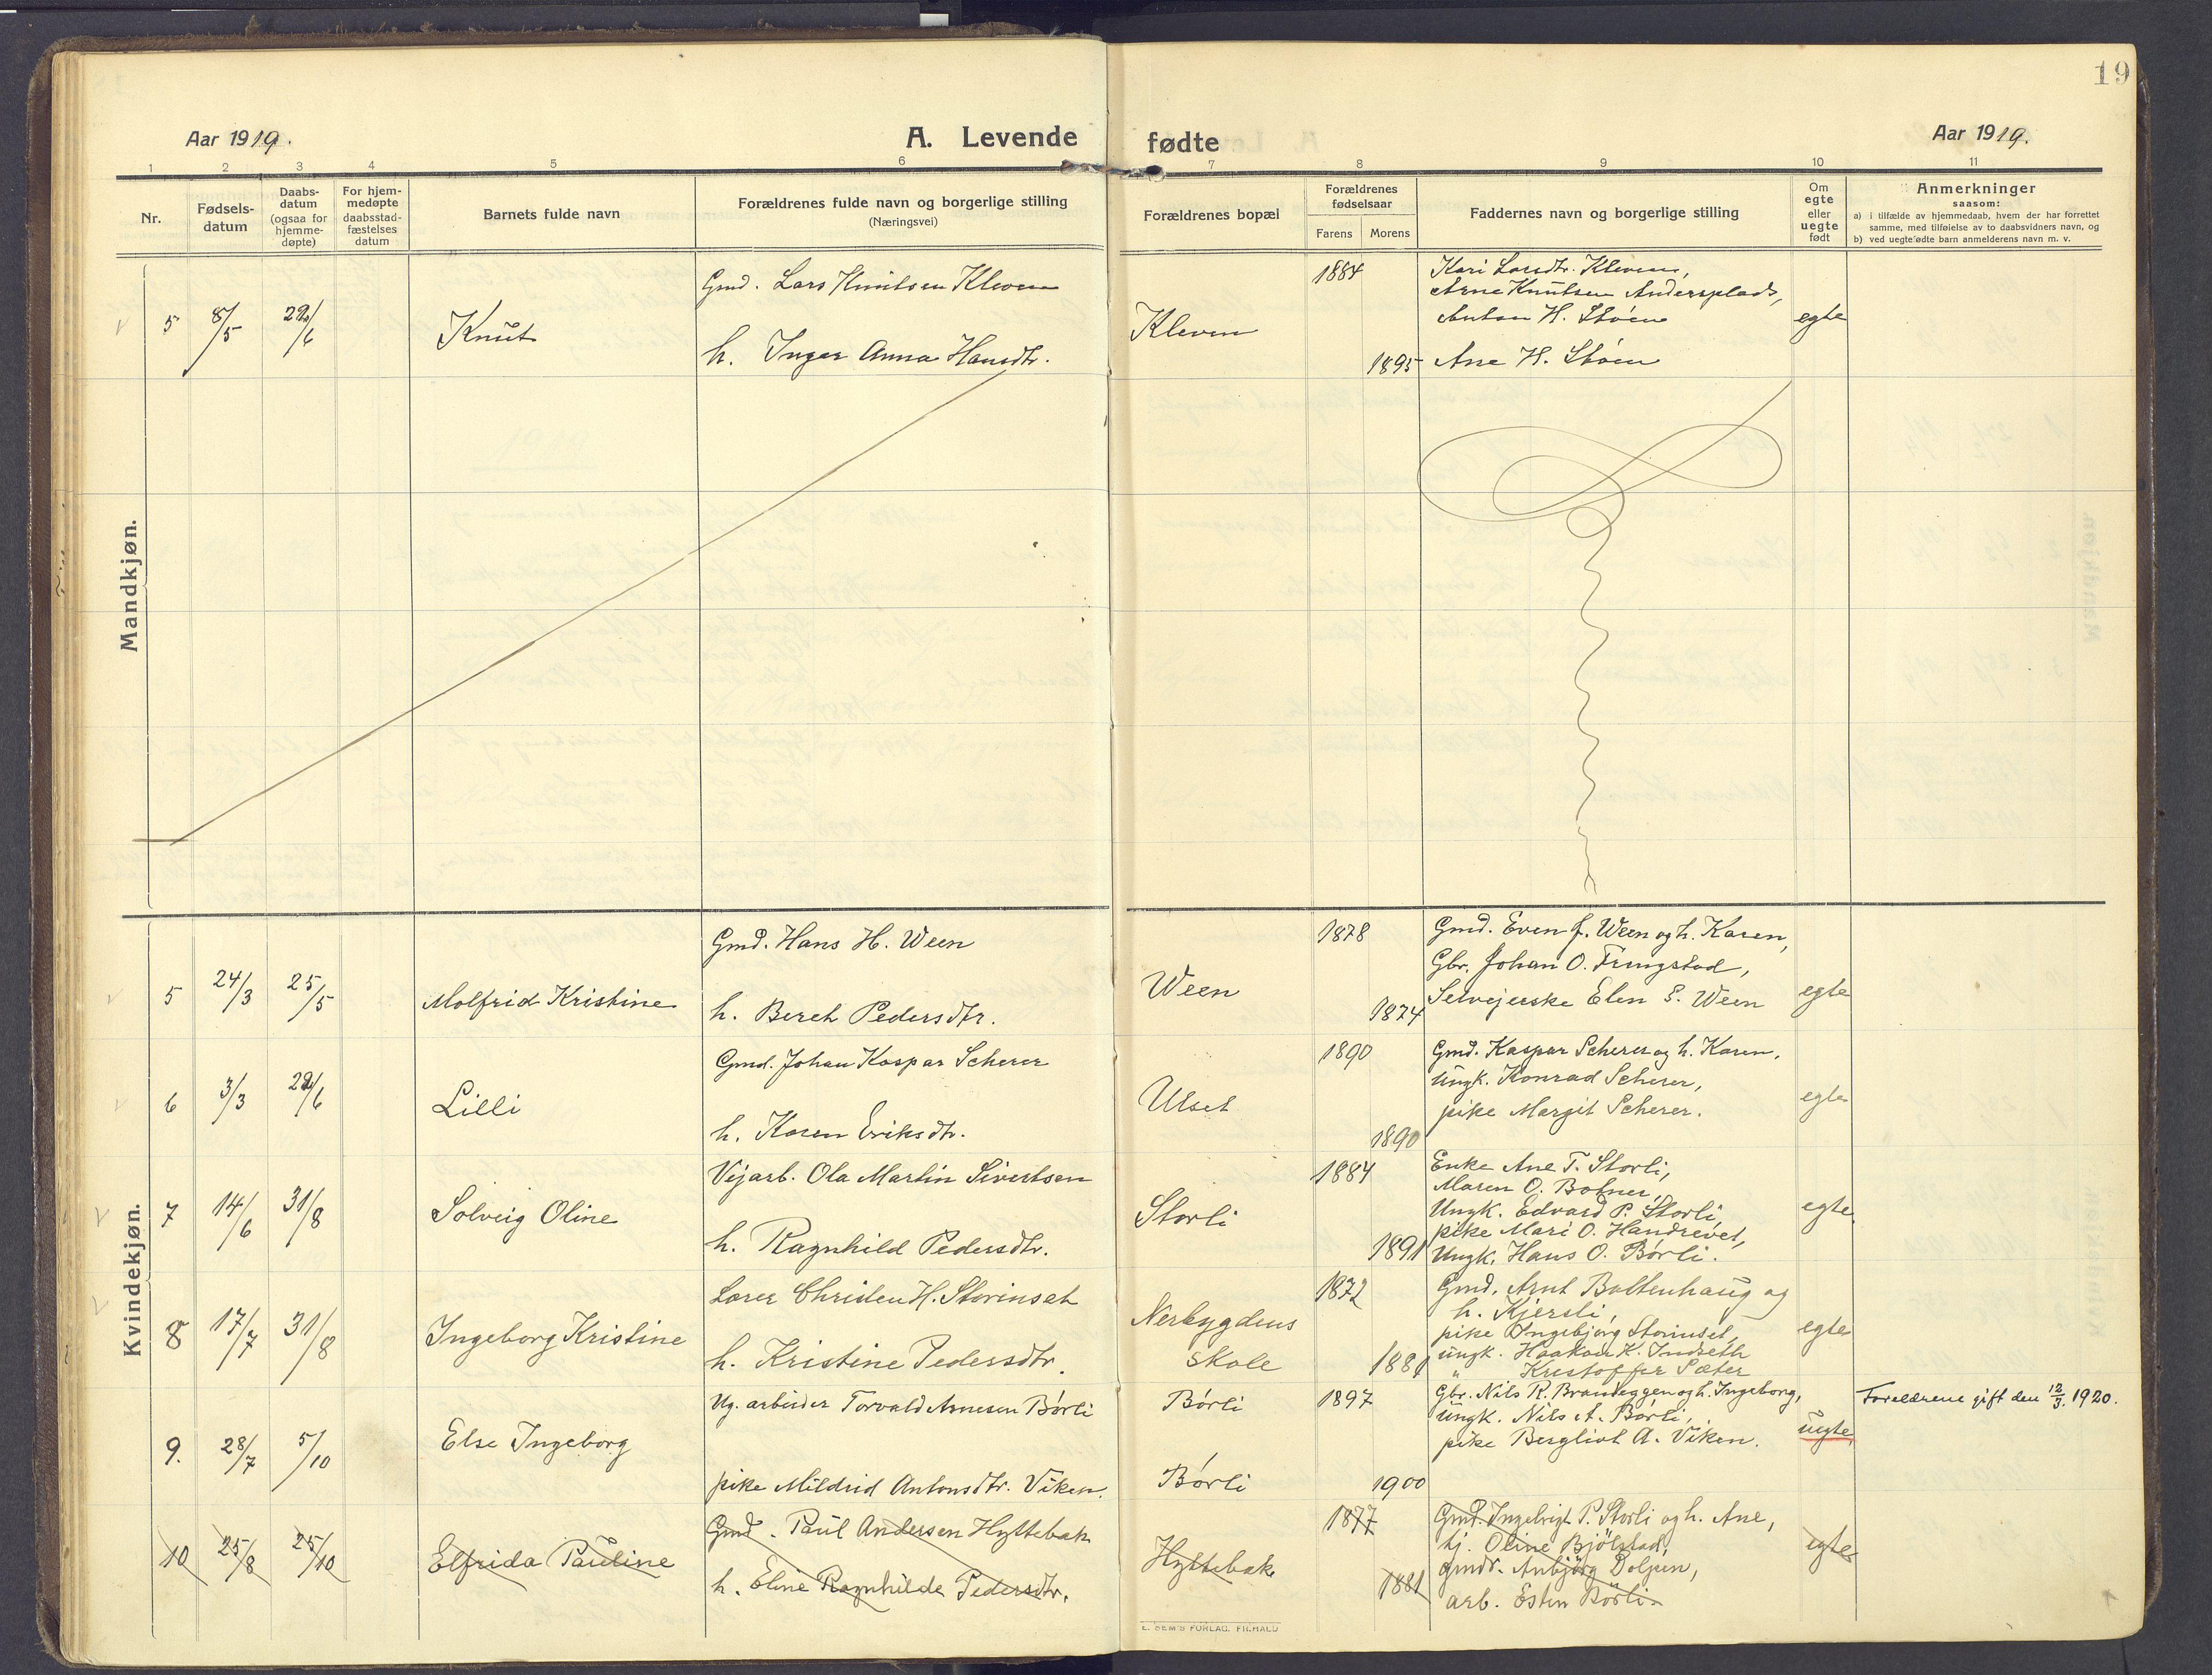 19
Aar 1919.
A. Levende fødte
Aar 1919.
1 2 3 4 5 6 7 8 9 10 11
Nr.
Fødsels-
datum
Daabs-
datum
(ogsaa for
hjemme-
døpte)
For hjem-
medøpte
daabsstad-
fæstelses
datum
Barnets fulde navn
Forældrenes fulde navn og borgerlige stilling
(Næringsvei)
Forældrenes bopæl
Forældrenes
fødselsaar
Farens Morens
Faddernes navn og borgerlige stilling
Om
egte
eller
uegte
født
Anmerkninger
saasom:
a) i tilfælde av hjemmedaab, hvem der har forrettet
samme, med tilføielse av to daabsvidners navn, og
b) ved uegtefødte barn anmelderens navn m. v.
Mandkjøn.
5 8/5 22/6 Knut
Gmd. Lars Knutsen Kleven
h. Inger Anna Hansdtr.
Kleven
1884
1895
Kari Larsdtr. Kleven,
Arne Knutsen Andersplads,
Anton H. Støen
Ane H. Støen
egte
Kvindekjøn.
5 24/3 25/5 Molfrid Kristine
Gmd. Hans H. Ween
h. Beret Pedersdtr.
Ween
1878
1874
Gmd. Even J. Ween og h. Karen,
Gbr. Johan O. Tringstad,
Selvejerske Elen E. Ween
egte
6 3/3 22/6 Lilli
Gmd. Johan Kaspar Scherer
h. Karen Eriksdtr.
Ulset
1890
1890
Gmd. Kaspar Scherer og h. Karen,
ungk. Konrad Scherer,
pike Margit Scherer.
egte
7 14/6 31/8 Solveig Oline
Vejarb. Ola Martin Sivertsen
h. Ragnhild Pedersdtr.
Storli
1884
1891
Enke Ane T. Storli,
Maren O. Botner,
Ungk. Edvard P. Storli,
pike Mari O. Handrevet,
Ungk. Hans O. Børli.
egte
8 17/7 31/8 Ingeborg Kristine
Lærer Christen H. Storinset
h. Kristine Pedersdtr.
Nerbygdens
skole
1872
1881
Gmd. Arnt Boltenhaug og
h. Kjersti,
pike Ingebjørg Storinset,
ungk. Haakon K. Indseth
" Kristoffer Sæter
egte
9. 28/7 5/10 Else Ingeborg
Ug. arbeider Torvald Arnesen Børli
pike Mildrid Antonsdtr. Viken.
Børli
Børli
1897
1900
Gbr. Nils R. Brandeggen og h. Ingeborg,
ungk. Nils A. Børli,
pike Bergliot A. Viken.
uegte
Foreldrene gift den 12/3. 1920.
10 25/8 25/10 Elfrida Pauline
Gmd. Paul Andersen Hyttebak
h. Eline Ragnhilde Pedersdtr.
Hyttebak
1877
1881
Gmd. Ingebrigt P. Storli og h. Ane,
tj. Oline Bjölstad,
gmdr. Anbjörg Dolpen,
arb. Esten Börli.
egte
E. SEM'S FORLAG, FR.HALD